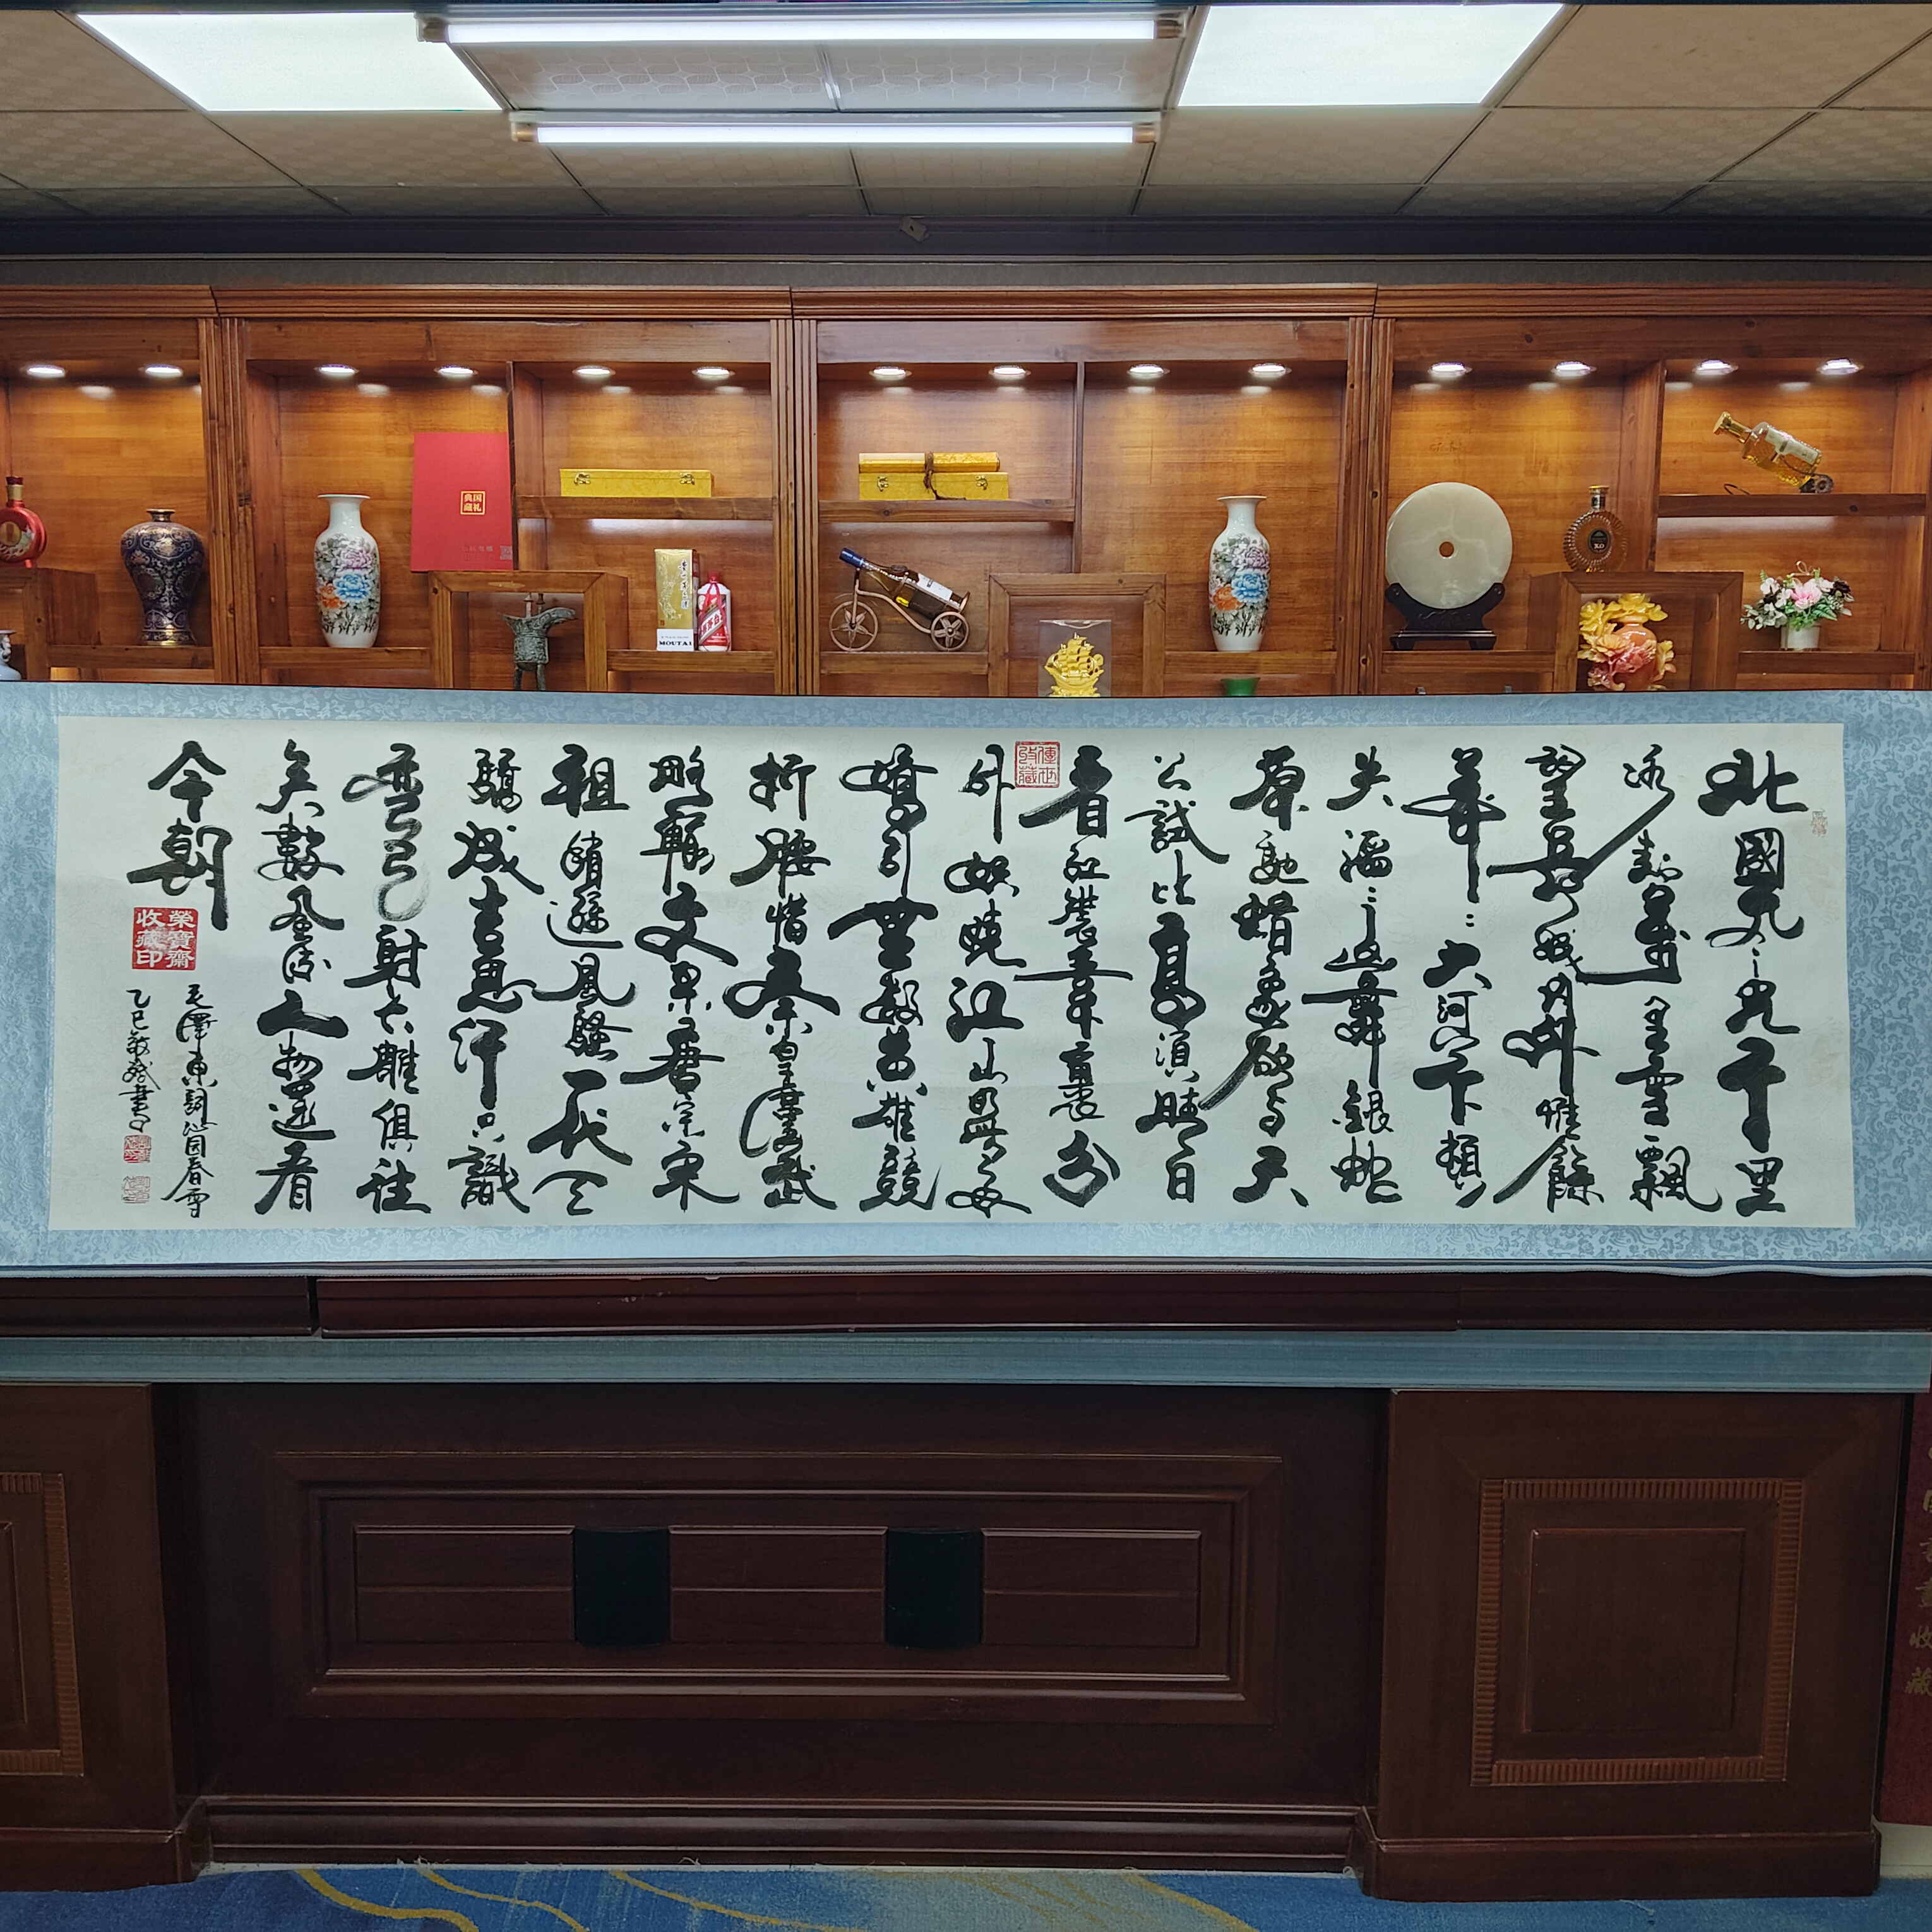 国礼
典藏
MOUTAI
XO
北國風光千里
冰封萬里雪飄
望長城内外惟餘
莽莽大河上下頓
失滔滔山舞銀蛇
原馳蜡象欲與天
公試比高須晴日
看紅裝素裹分
傳世
收藏
外妖嬈江山如此多
嬌引無數英雄競
折腰惜秦皇漢武
略輸文采唐宗宋
祖稍遜風騷一代天
驕成吉思汗只識
彎弓射大雕俱往
矣數風流人物還看
今朝
榮寶齋
收藏印
毛澤東詞沁园春雪
乙巳敏斌書